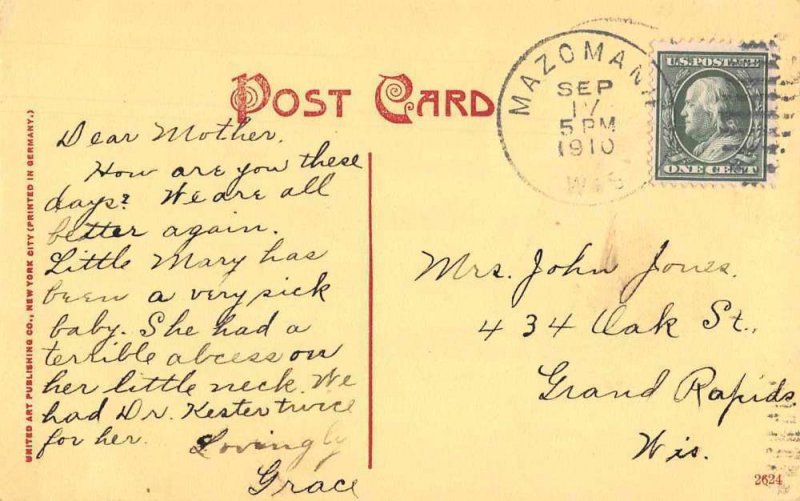 POST CARD
MAZOMANIE
SEP
17
5 PM
1910
WIS
U.S. POSTAGE
ONE CENT
Dear Mother.
How are you these
days? We are all
better again.
Little Mary has
been a very sick
baby. She had a
terrible abcess on
her little neck. We
had Dr. Kester twice
for her.
Lovingly
Grace
Mrs. John Jones.
434 Oak St.,
Grand Rapids
Wis.
UNITED ART PUBLISHING CO., NEW YORK CITY (PRINTED IN GERMANY.)
2624